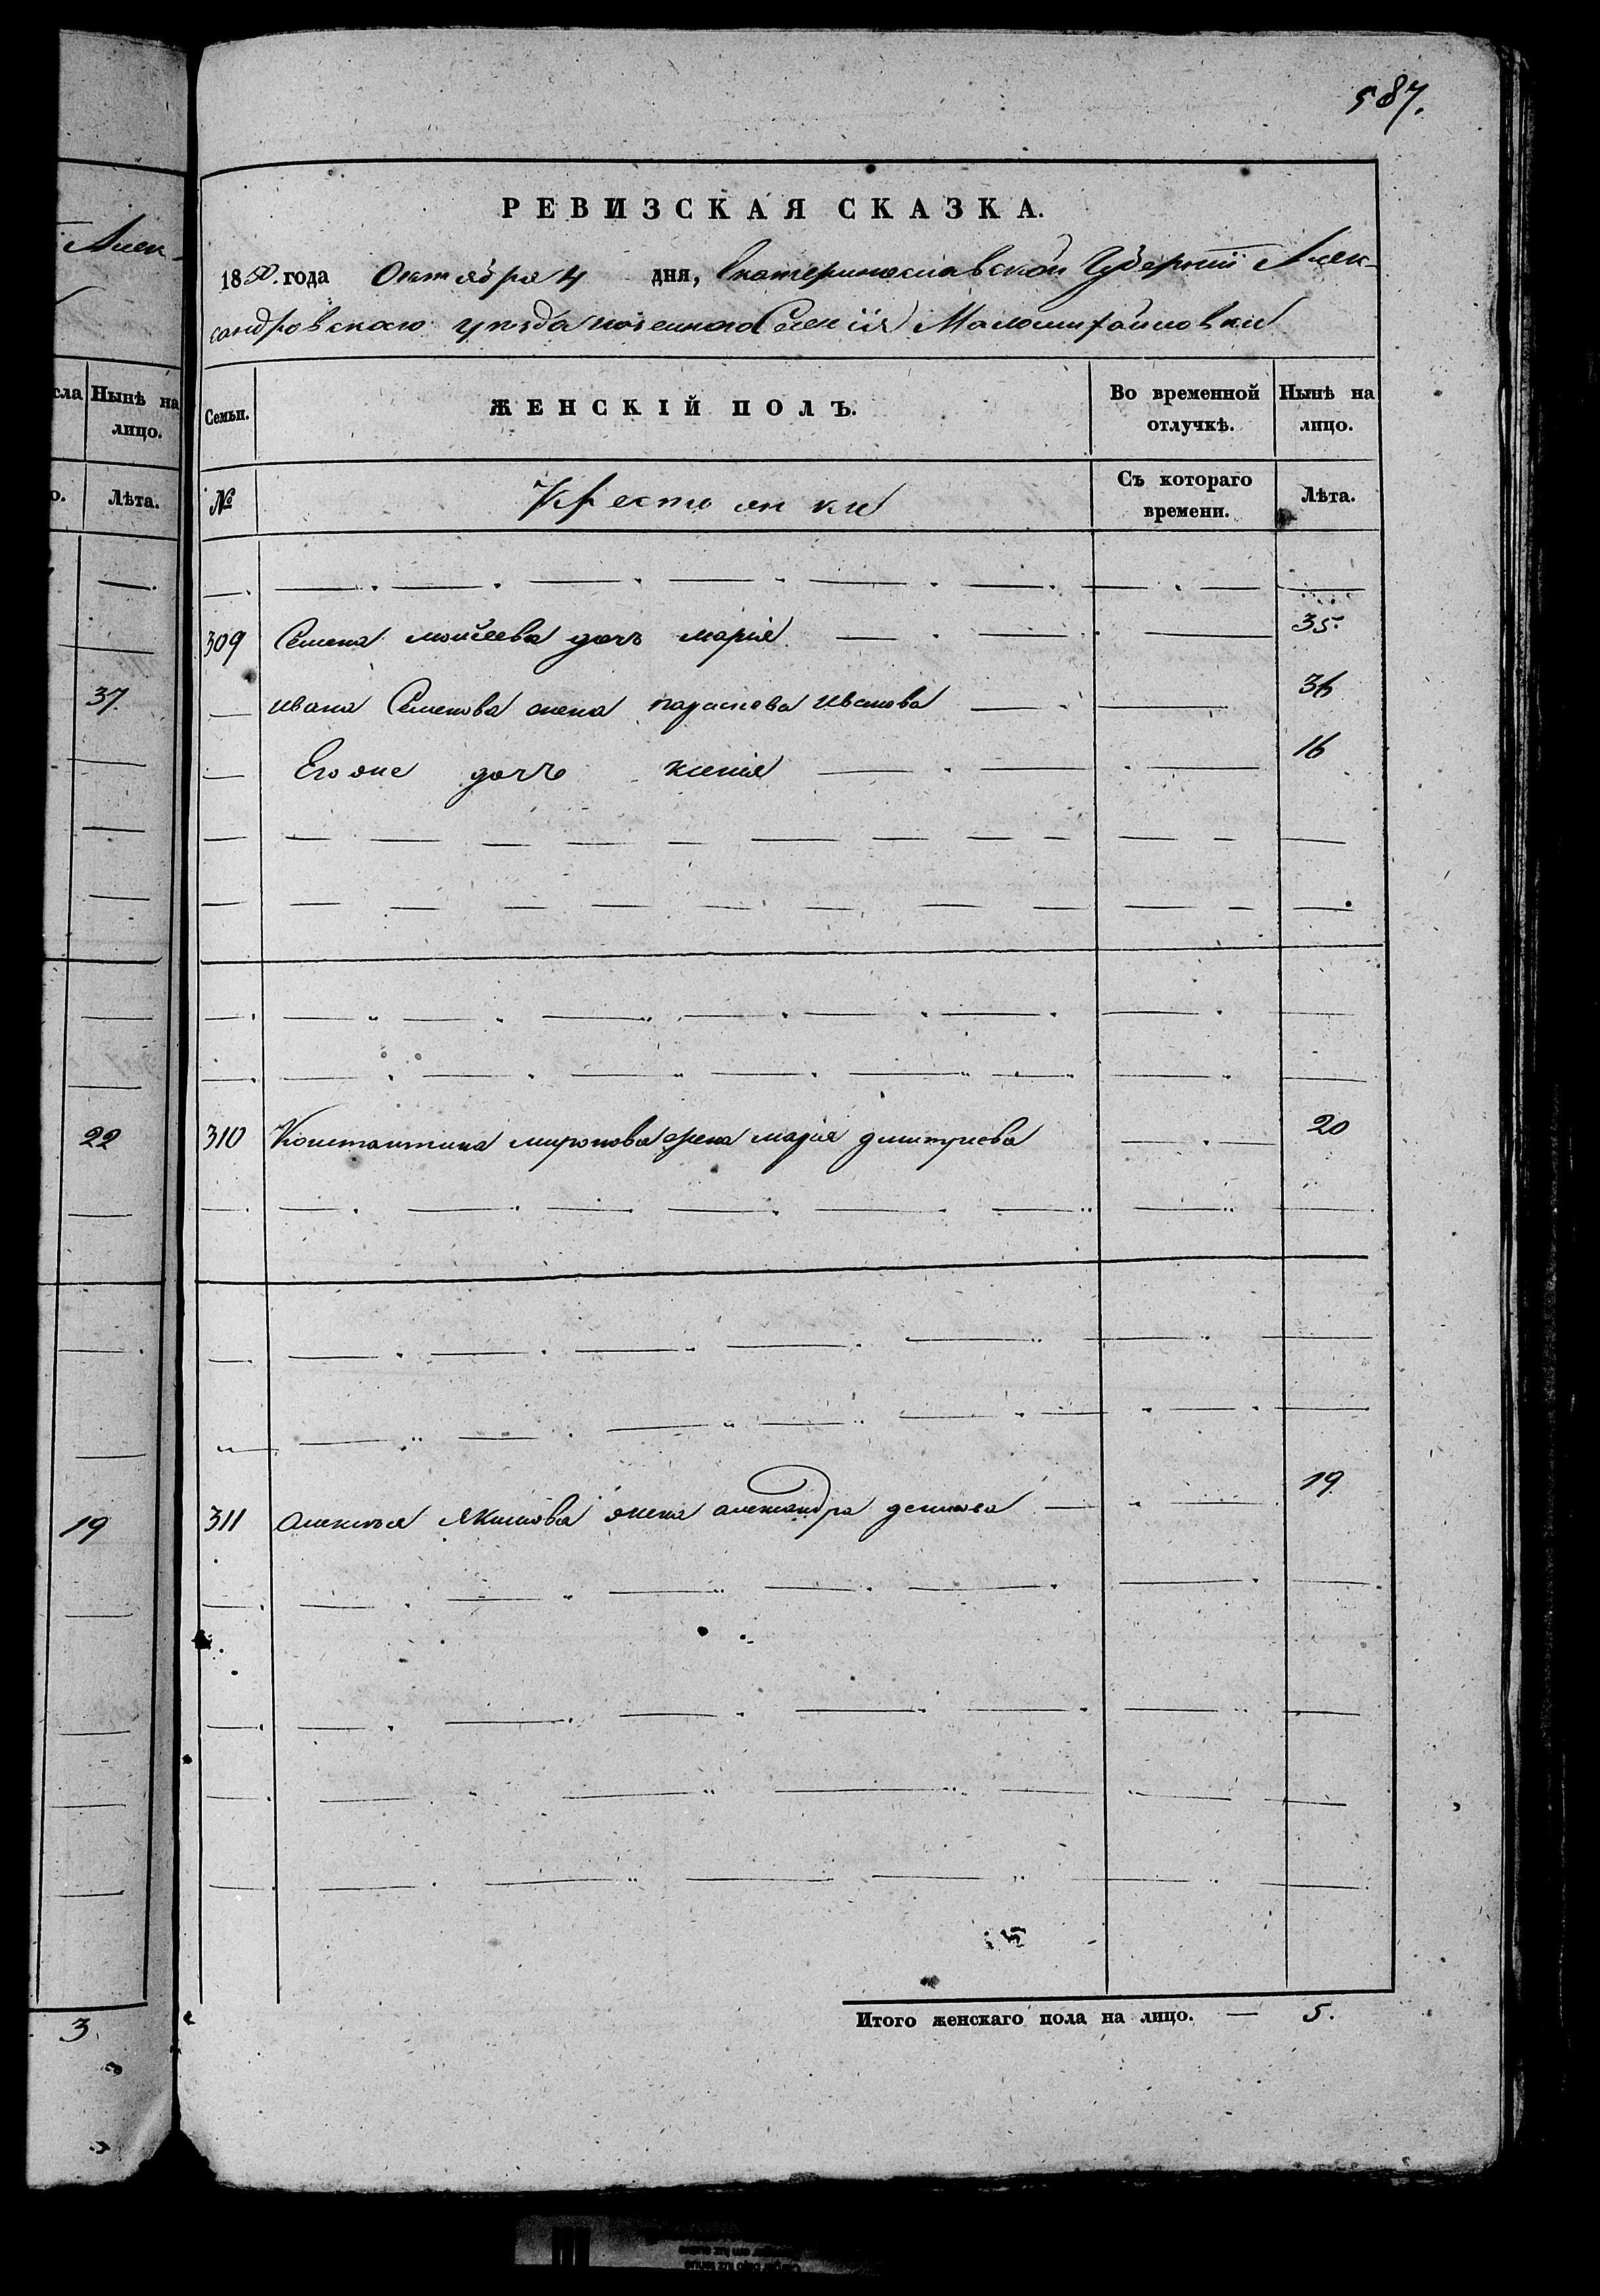 587.
Алек-
РЕВИЗСКАЯ СКАЗКА.
1850. года Октября 4 дня, Екатеринославской Губернии Алек-
сандровского уезда казенного Селенія Маломихайловки
сла Нынѣ на лицо.
о. Лѣта.
Семьи. ЖЕНСКІЙ ПОЛЪ. Во временной отлучкѣ. Нынѣ на лицо.
№ Крестьянки Съ котораго времени. Лѣта.
309 Семена моисеева дочь марія 35.
37. ивана Семенова жена параскева иванова 36
Его же дочь ксенія 16
22 310 Константина миронова жена марія дмитриева 20
19 311 алексея якимова жена александра денисова 19
3. Итого женскаго пола на лицо. — 5.